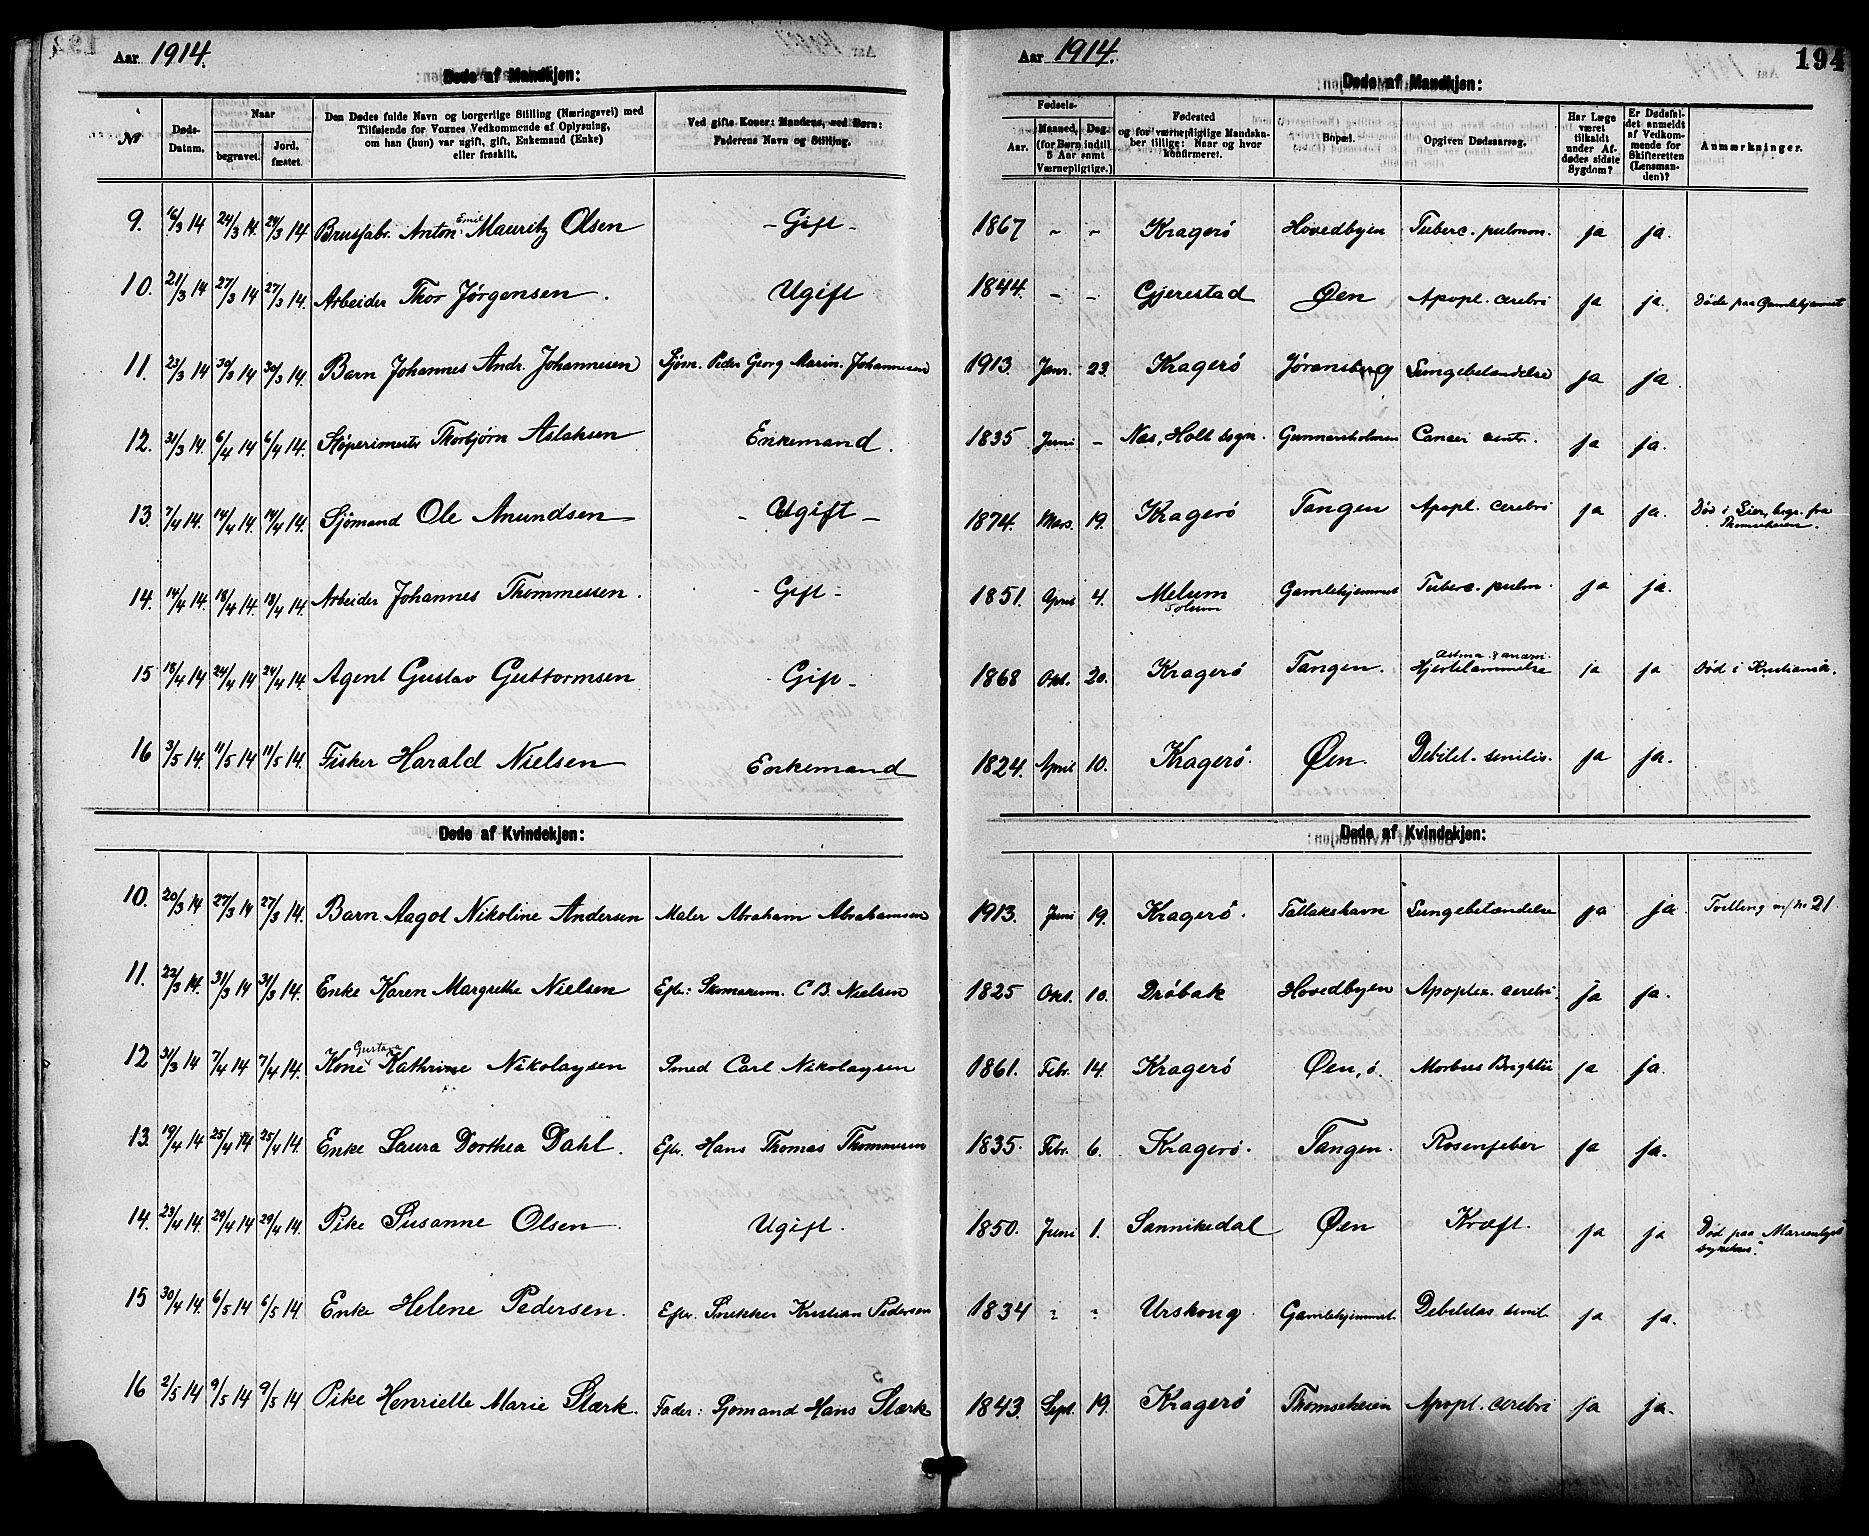 Aar 1914.
Døde af Mandkjøn:
№
Døds-Datum.
Naar
begravet.
Jord-fæstet.
Den Dødes fulde Navn og borgerlige Stilling (Næringsvei) med
Tilføiende for Voxnes Vedkommende af Oplysning,
om han (hun) var ugift, gift, Enkemand (Enke)
eller fraskilt.
Ved gifte Koner: Mandens, ved Børn:
Faderens Navn og Stilling.
9. 16/3 14 24/3 14. 24/3 14 Brusfabr. Anton Emil Mauritz Olsen - Gift -
10. 21/3 14 27/3 14 27/3 14. Arbeider Thor Jørgensen. Ugift
11. 23/3 14 30/3 14 30/3 14. Barn Johannes Andr. Johannesen Sjøm. Peder Georg Marin. Johannesen
12. 31/3 14. 6/4 14 6/4 14. Støperimester Thorbjørn Aslaksen Enkemand.
13. 7/4 14. 14/4 14 14/4 14. Sjømand Ole Anundsen - Ugift -
14. 14/4 14. 18/4 14. 18/4 14. Arbeider Johannes Thommessen. - Gift -
15 18/4 14 24/4 14 24/4 14. Agent Gustav Guttormsen - Gift -
16 3/5 14. 11/5 14 11/5 14. Fisker Harald Nielsen Enkemand
Døde af Kvindekjøn:
10. 20/3 14 27/3 14 27/3 14. Barn Aagot Nikoline Andersen Maler Abraham Abrahamsen
11. 22/3 14. 31/3 14 31/3 14. Enke Karen Margrethe Nielsen Eft.: Skomagerm. C B. Nielsen
12 31/3 14 7/4 14 7/4 14. Kone Gustava Kathrine Nikolaysen Smed Carl Nikolaysen
13. 19/4 14 25/4 14 25/4 14. Enke Laura Dorthea Dahl. Eft. Hans Thomas Thommesen
14. 23/4 14. 29/4 14 29/4 14. Pike Susanne Olsen Ugift.
15 30/4 14. 6/5 14 6/5 14. Enke Helene Pedersen. Eft. Snekker Kristian Pedersen
16 2/5 14 9/5 14 9/5 14 Pike Henriette Marie Stærk. Fader: Sjømand Hans Stærk
Aar 1914.
194
Døde af Mandkjøn:
Fødsels-
Aar.
Maaned, Dag.
(for Børn indtil
5 Aar samt
Værnepligtige.)
Fødested
og for værnepligtige Mandska-
ber tillige: Naar og hvor
konfirmeret.
Bopæl.
Opgiven Dødsaarsag.
Har Læge
været
tilkaldt
under Af-
dødes sidste
Sygdom?
Er Dødsfal-
det anmeldt
af Vedkom-
mende for
Skifteretten
(Lensman-
den)?
Anmærkninger.
1867 - - Kragerö Hovedbyen Tuberc. pulmon. ja ja.
1844. - - Gjerestad Øen Apopl. cerebri ja ja. Døde paa Gamlehjemmet
1913. Janr. 23. Kragerö Jøransberg Lungebetændelse ja ja.
1835 Juni - Nas, Holt sogn. Gunnarsholmen Cancer ventr. ja ja.
1874. Mars. 19. Kragerö Tangen Apopl. cerebri ja ja. Død i Lier, begr. fra
Thomseheien.
1851. April 4. Melum
Solum Gamlehjemmet Tuberc. pulm. ja ja.
1868 Okt. 20. Kragerö Tangen. Astma &
Hjertelammelse ja ja Død i Kristiania.
1824. April 10. Kragerö. Øen. Debilit. senilis. ja ja.
Døde af Kvindekjøn:
1913. Juni 19. Kragerö. Tallakshavn Lungebetændelse ja ja Tvilling m/ No 21
1825 Okt. 10. Dröbak Hovedbyen Apoplex. cerebri. ja ja.
1861. Febr. 14. Kragerö Øen, ö. Morbus Brightii ja ja.
1835. Febr. 6. Kragerö. Tangen. Rosenfeber ja ja.
1850. Juni 1. Sannikedal Øen Kræft. ja ja Død paa Marienlyst
sykehus.
1834 " " Urskoug. Gamlehjemmet. Debilitas senil. ja ja.
1843. Sept. 19. Kragerö Thomseheien Apopl. cerebri ja ja.